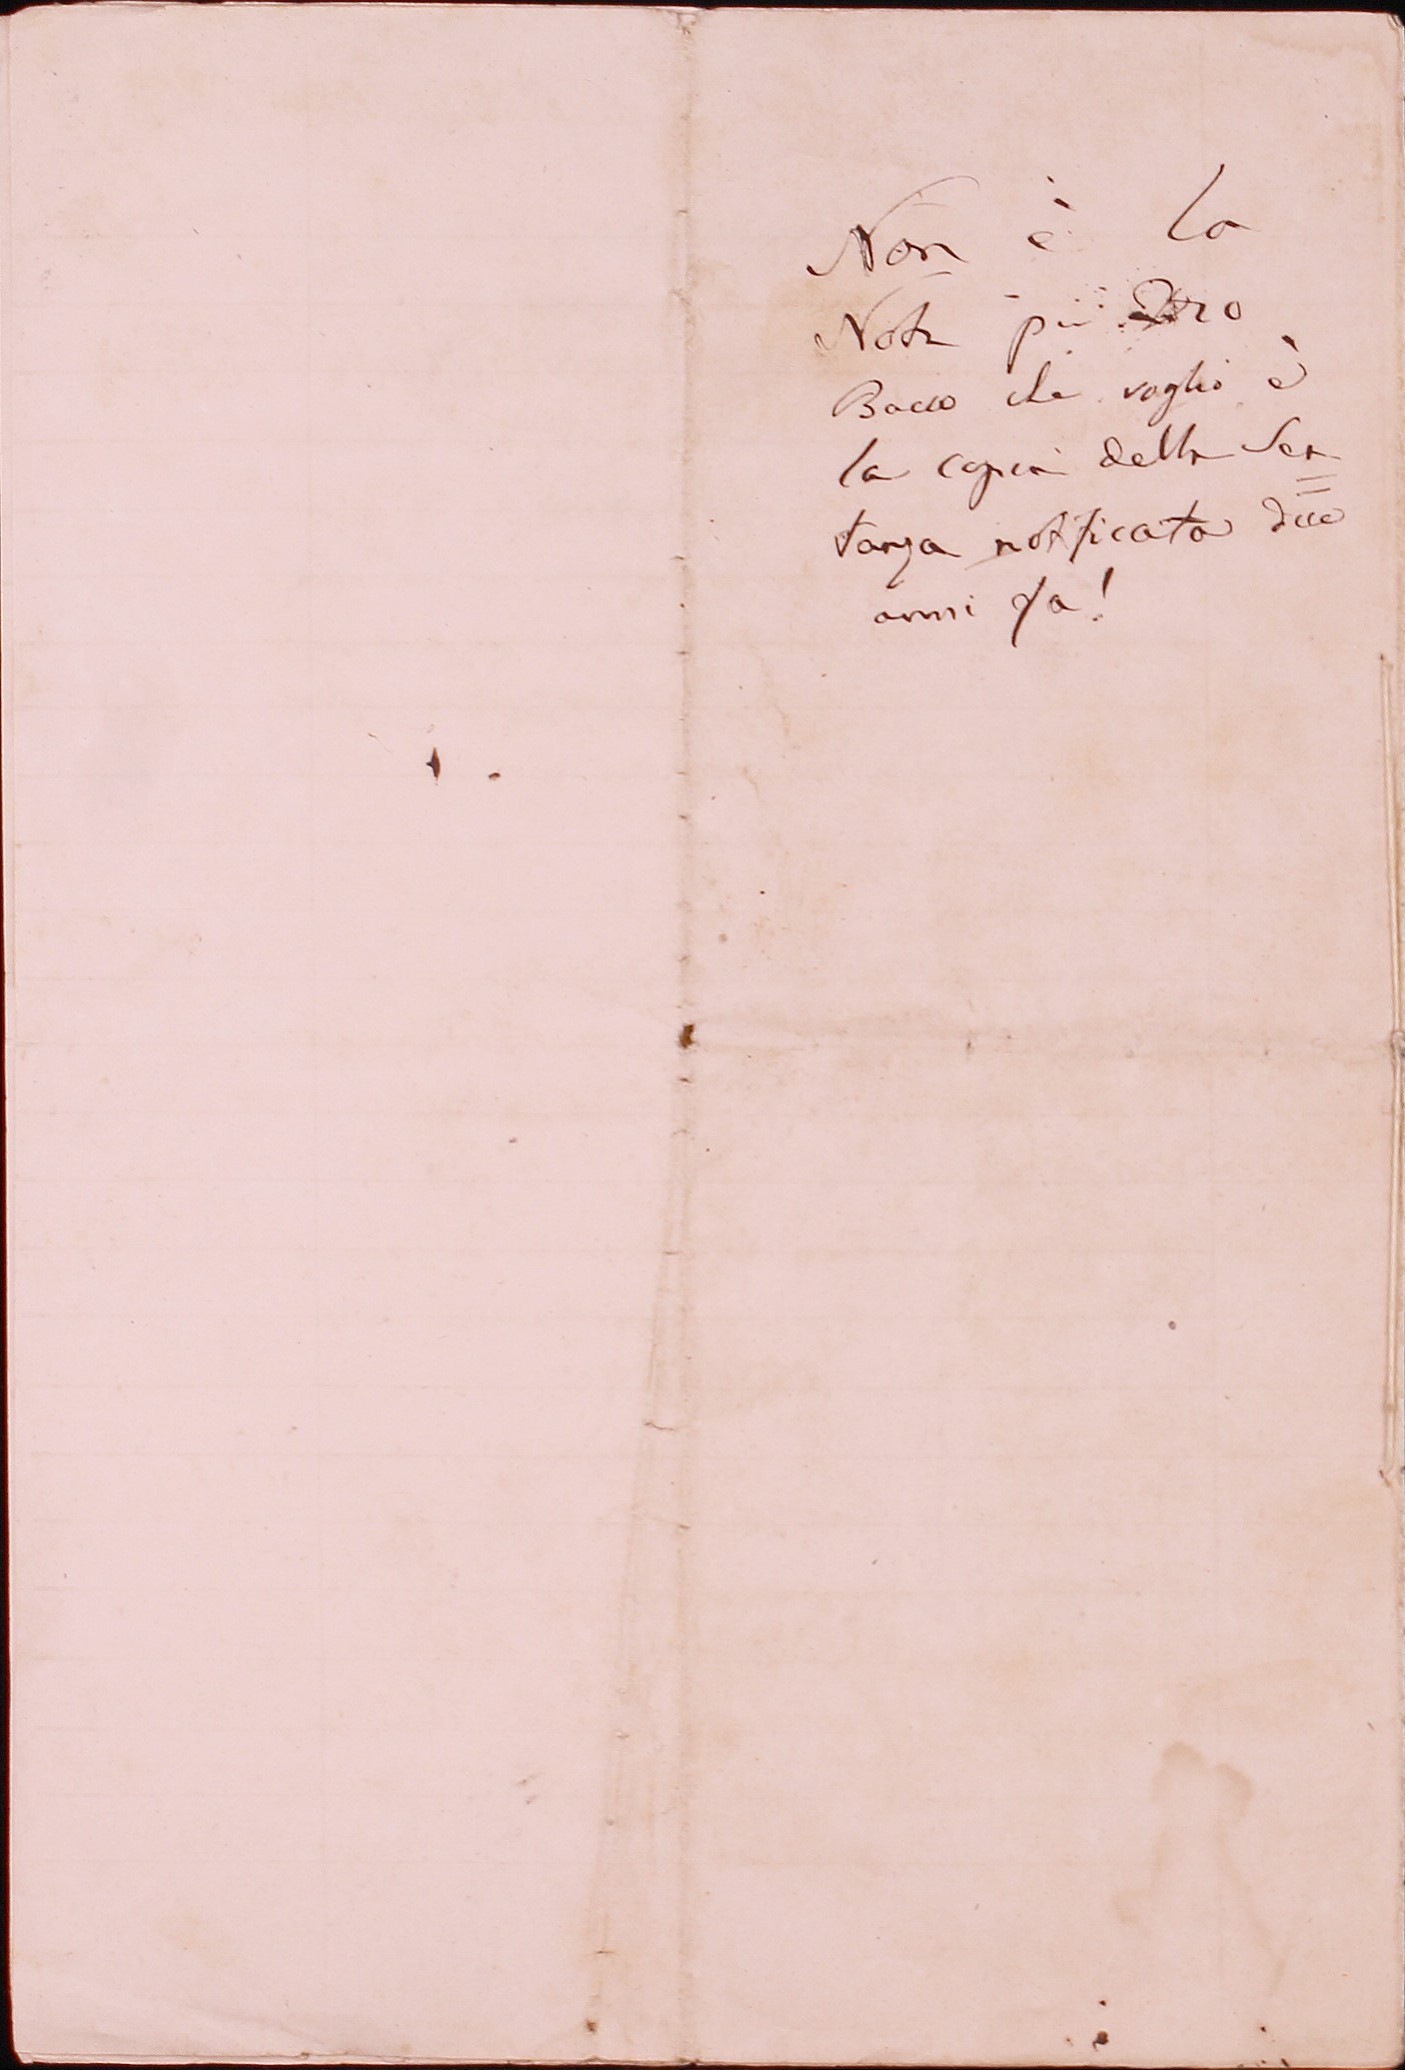 Non è la
Nota più
Bacco che voglio è
la copia della Sen
tanza notificata due
anni fa!